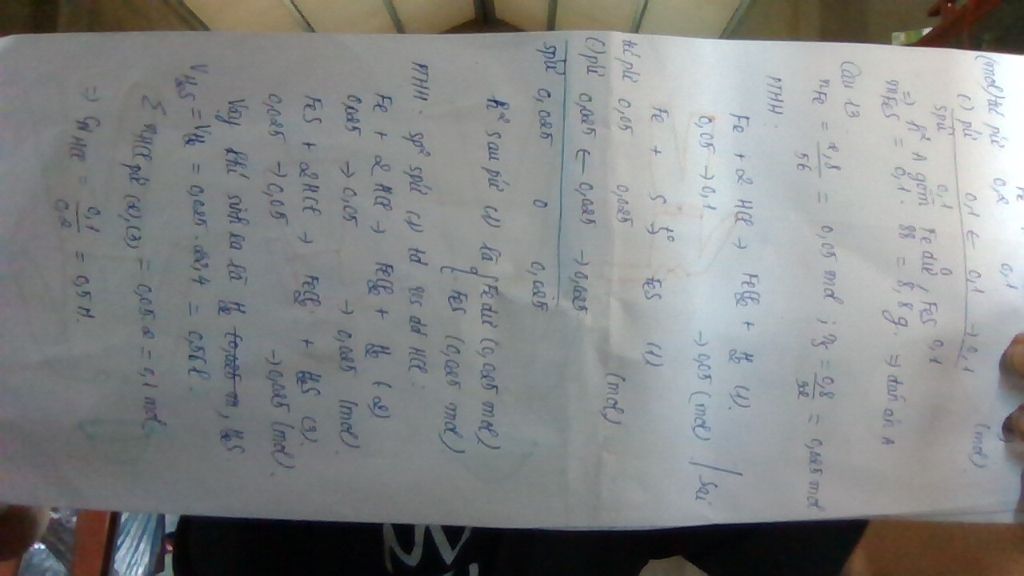 (mol) tđ pứ 0,2 0,1
(1) pứ 0,1 ← 0,1 → 0,1 (mol).
spứ 0,1 0 0,1
⇒ h² A gồm Fe dư, FeS
mFeS = 0,1 . 88 = 8,8 g. ⇒ đáp án A
Câu 13
nFe = 2,8/56 = 0,05 mol ; nS = 0,8/32 = 0,025 mol
PTHH:
Fe + 2HCl → FeCl2 + H2 (1).
0,05 → 0,1 → 0,05 (mol) / Sai
Fe + S →t° FeS (1)
tđ pứ 0,05 0,025 (mol)
(1) pứ 0,025 ← 0,025 → 0,025
spứ 0,025 0 0,025
h² sau pứ (1) là { Fe dư (0,025 mol)
FeS (0,025 mol)
PTHH: sp² spứ (1) td vs dd HCl:
Fe + 2HCl → FeCl2 + H2 (2)
0,025 → 0,05 → 0,025 (mol).
FeS + 2HCl → FeCl2 + H2S (3).
0,025 → 0,05 → 0,025 (mol).
Vậy khí sinh ra là H2, H2S
VH2S = VH2 = 0,025 . 22,4 = 0,56 l.
Σ nHCl pứ (2),(3) = 0,05 . 2 = 0,1 mol
⇒ CM HCl = 0,1/0,2 = 0,5 M.